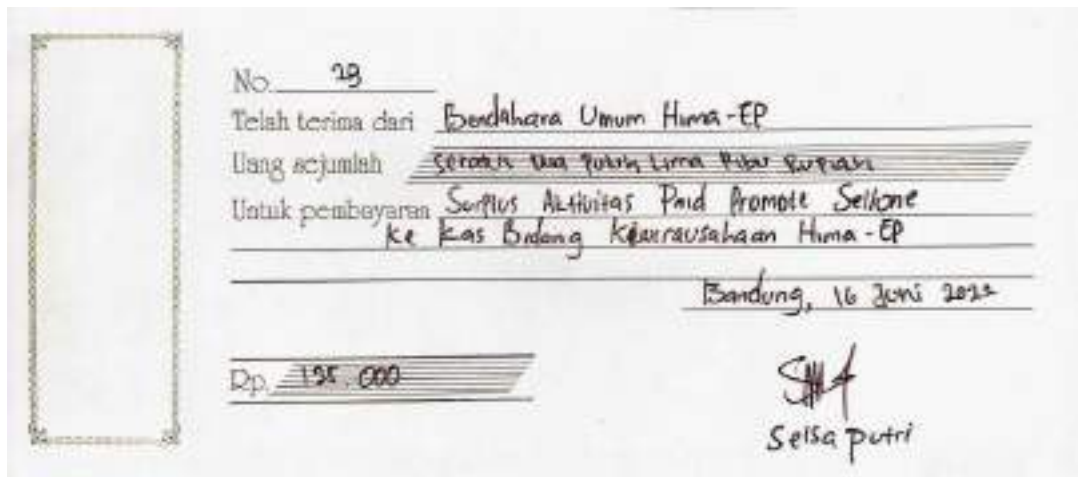 No. 29
Telah terima dari Bendahara Umum Hima-EP
Uang sejumlah Seratus Dua Puluh Lima Ribu Rupiah
Untuk pembayaran Surplus Aktivitas Paid Promote Sellone
ke Kas Bidang Kewirausahaan Hima-EP
Bandung, 16 Juni 2022
Rp. 125.000
Selsa putri